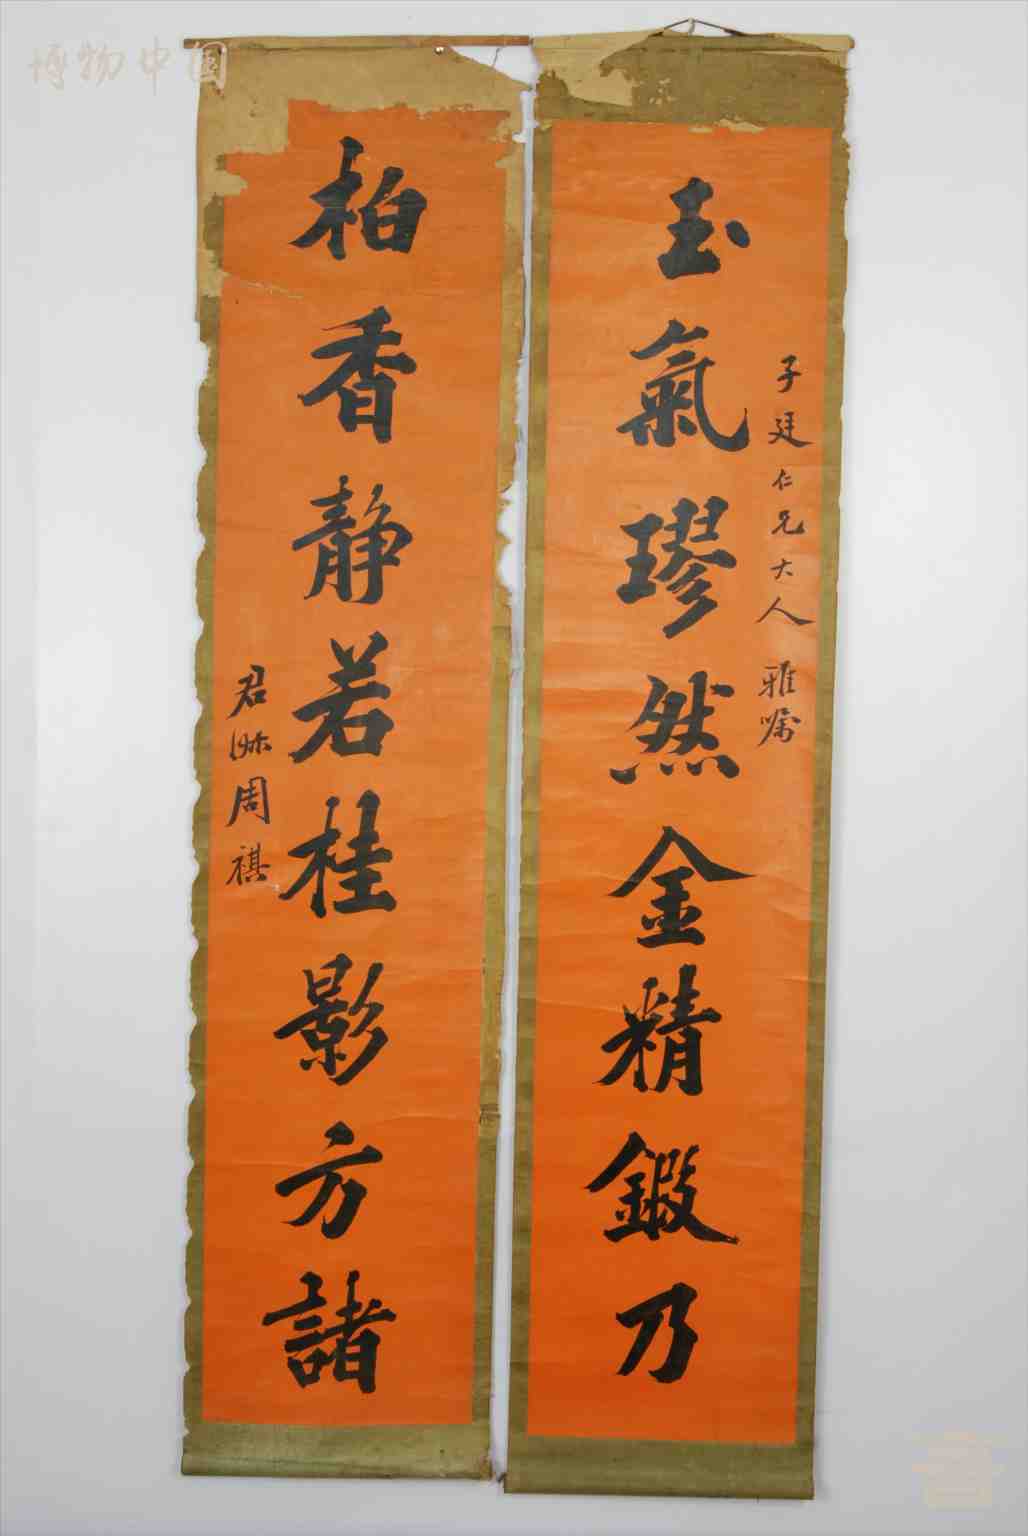 博物中国
子廷仁兄大人雅嘱
玉氣璆然金精鍛乃
柏香静若桂影方諸
君洲周祺